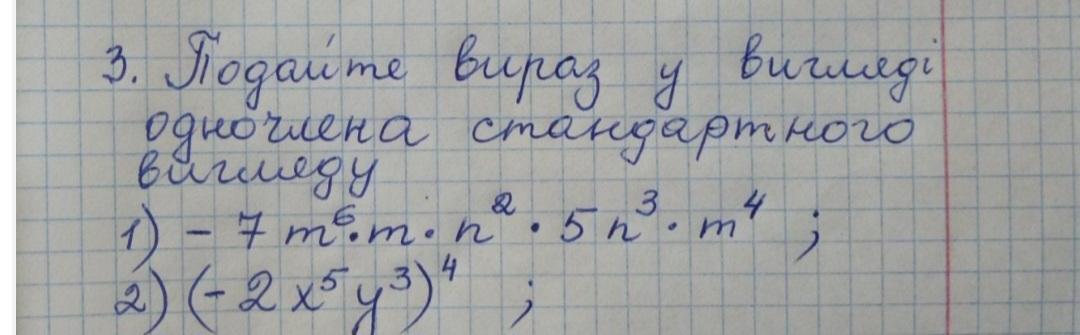 3. Подайте вираз у вигляді
одночлена стандартного
вигляду
1) - 7 m⁶ · m · n² · 5 n³ · m⁴ ;
2) (- 2 x⁵ y³)⁴ ;